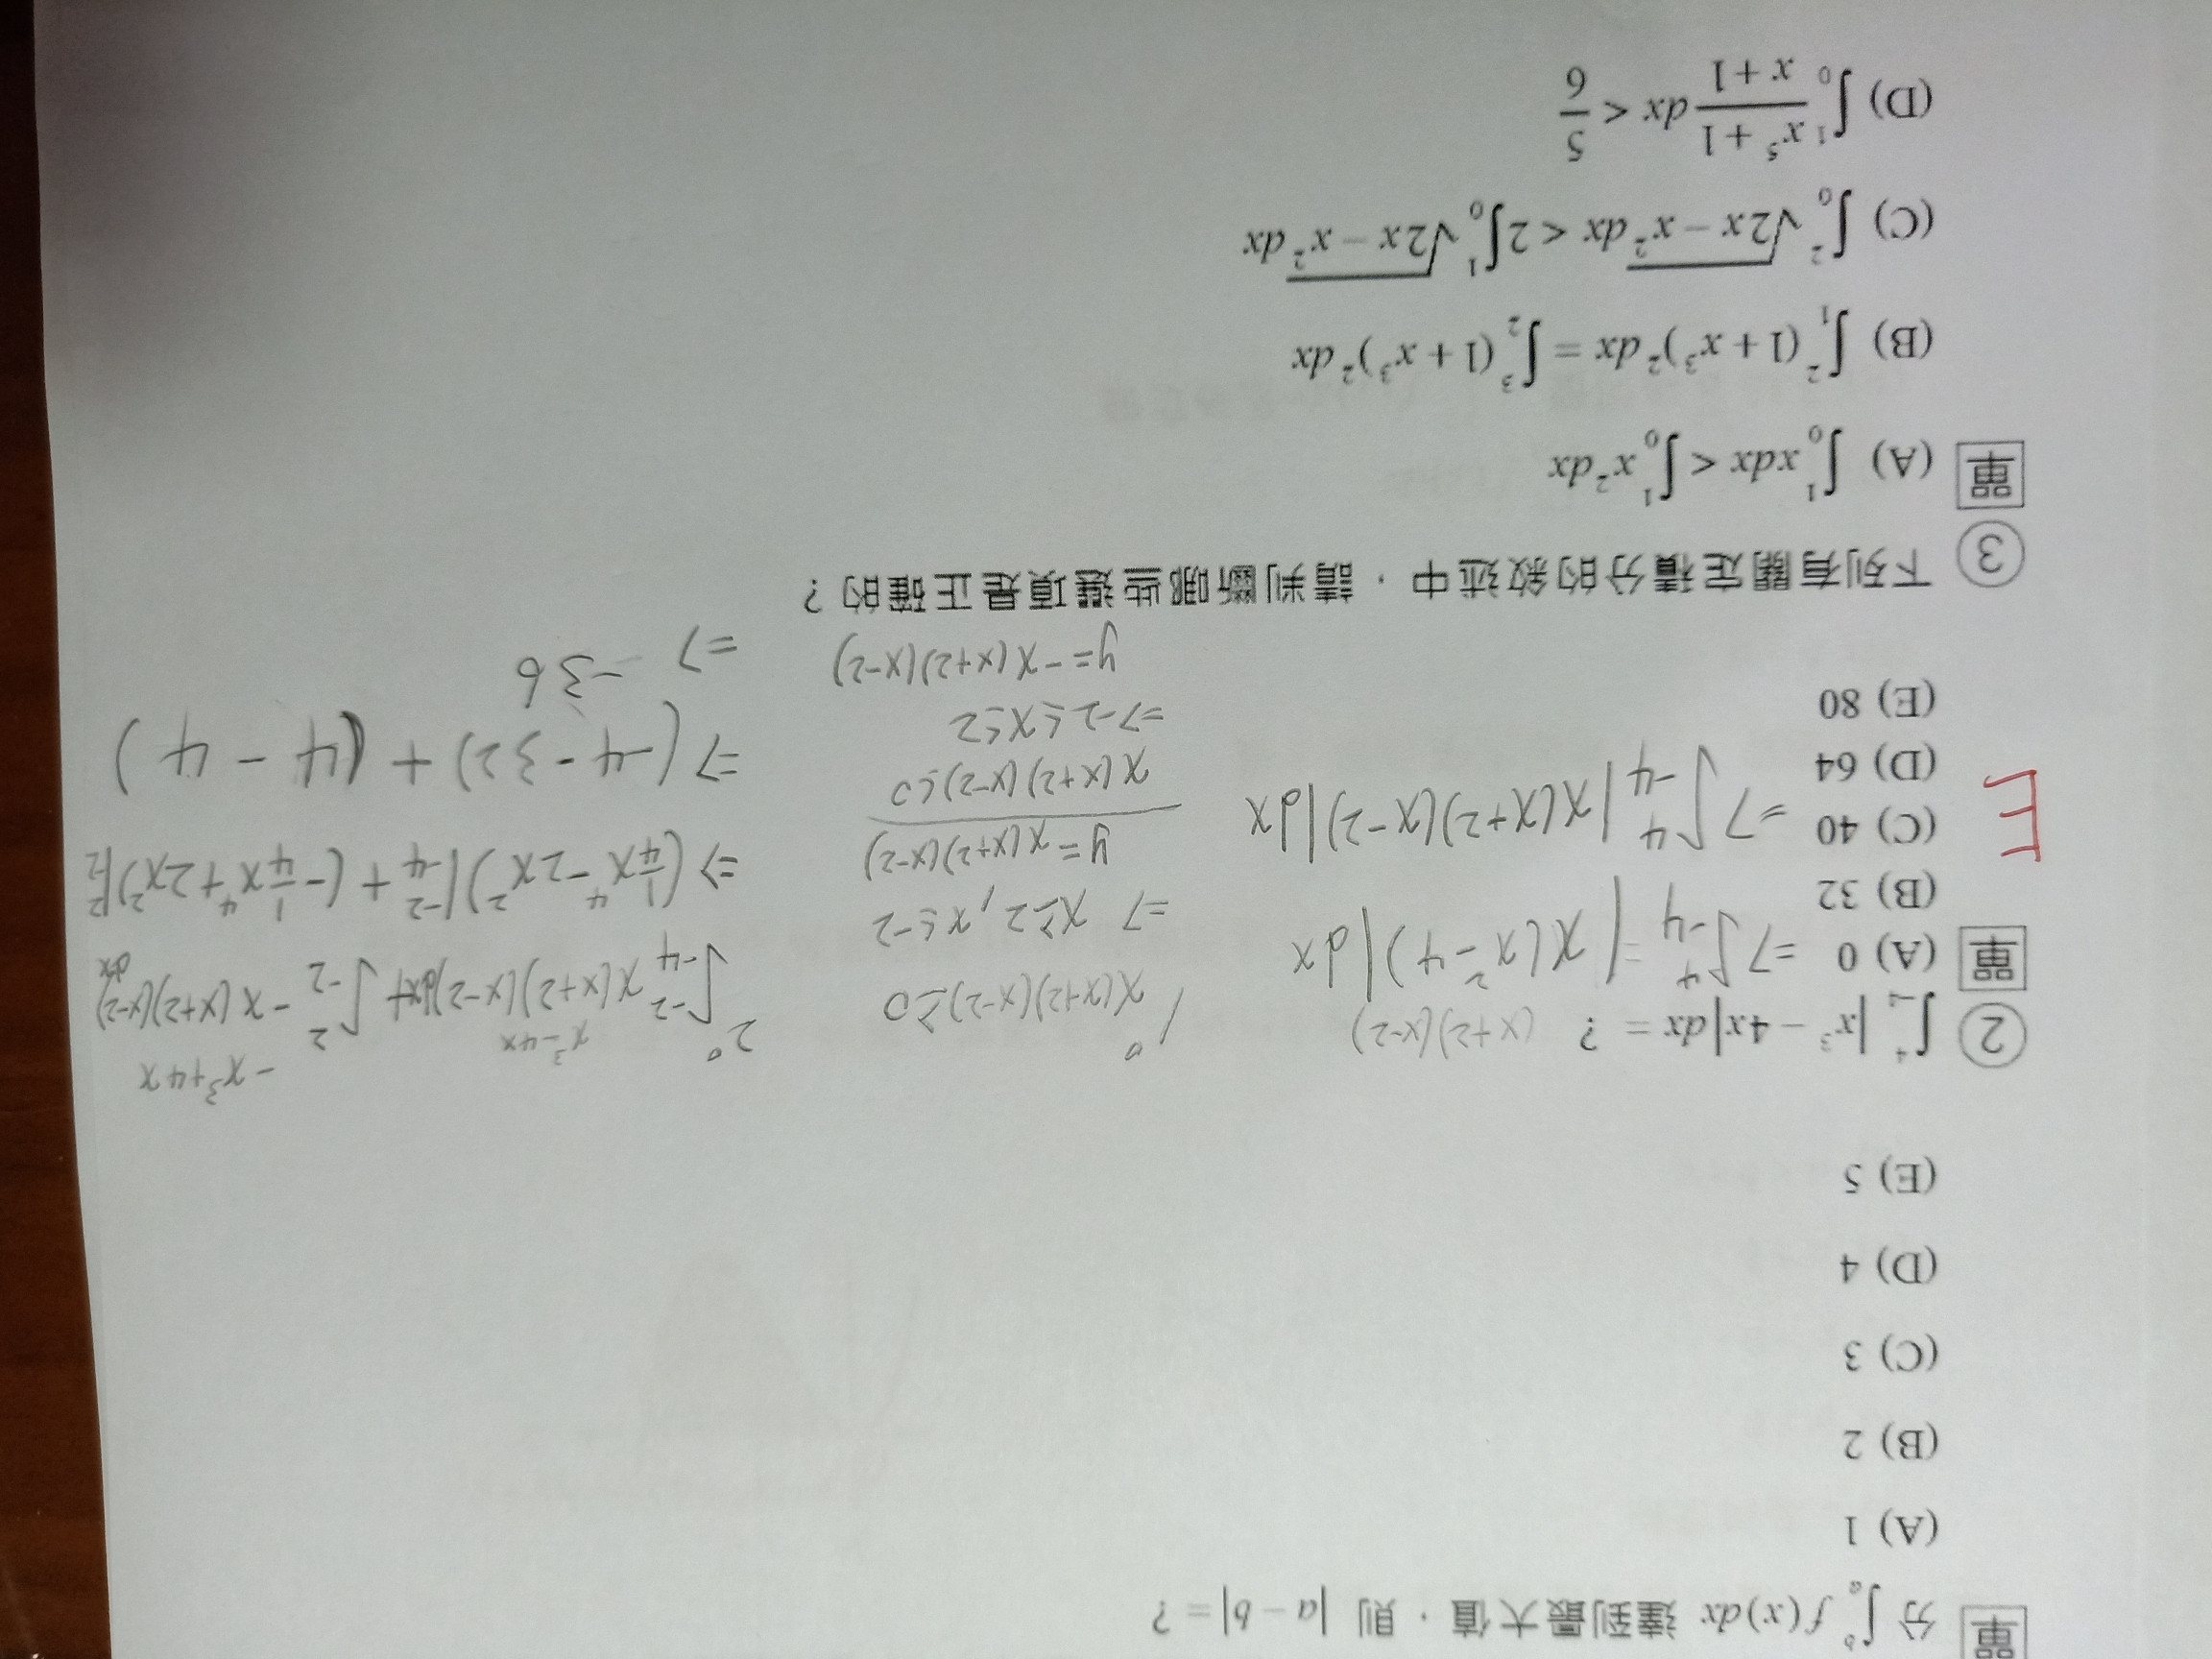 單 分 ∫_a^b f(x)dx 達到最大值，則 |a − b| = ?
(A) 1
(B) 2
(C) 3
(D) 4
(E) 5
② ∫_{-4}^{4} |x³ − 4x| dx = ? (x+2)(x-2)
單 (A) 0
(B) 32
(C) 40
(D) 64
(E) 80
E
=> ∫_{-4}^{4} |x(x²-4)| dx
=> ∫_{-4}^{4} |x(x+2)(x-2)| dx
1°
x(x+2)(x-2)≥0
=> x≥2, x≤-2
y=x(x+2)(x-2)
x(x+2)(x-2)≤0
=> -2≤x≤2
y=-x(x+2)(x-2)
2°
x³-4x
-x³+4x
∫_{-4}^{-2} x(x+2)(x-2)dx + ∫_{-2}^{2} -x(x+2)(x-2) dx
=> (1/4 x⁴ - 2x²)|_{-4}^{-2} + (-1/4 x⁴ + 2x²)|_{-2}^{2}
=> (-4-32) + (4-4)
=> -36
③ 下列有關定積分的敘述中，請判斷哪些選項是正確的？
單 (A) ∫_0^1 xdx < ∫_0^1 x²dx
(B) ∫_1^2 (1 + x³)²dx = ∫_2^3 (1 + x³)²dx
(C) ∫_0^2 √(2x − x²) dx < 2∫_0^1 √(2x − x²) dx
(D) ∫_0^1 (x⁵ + 1)/(x + 1) dx < 5/6